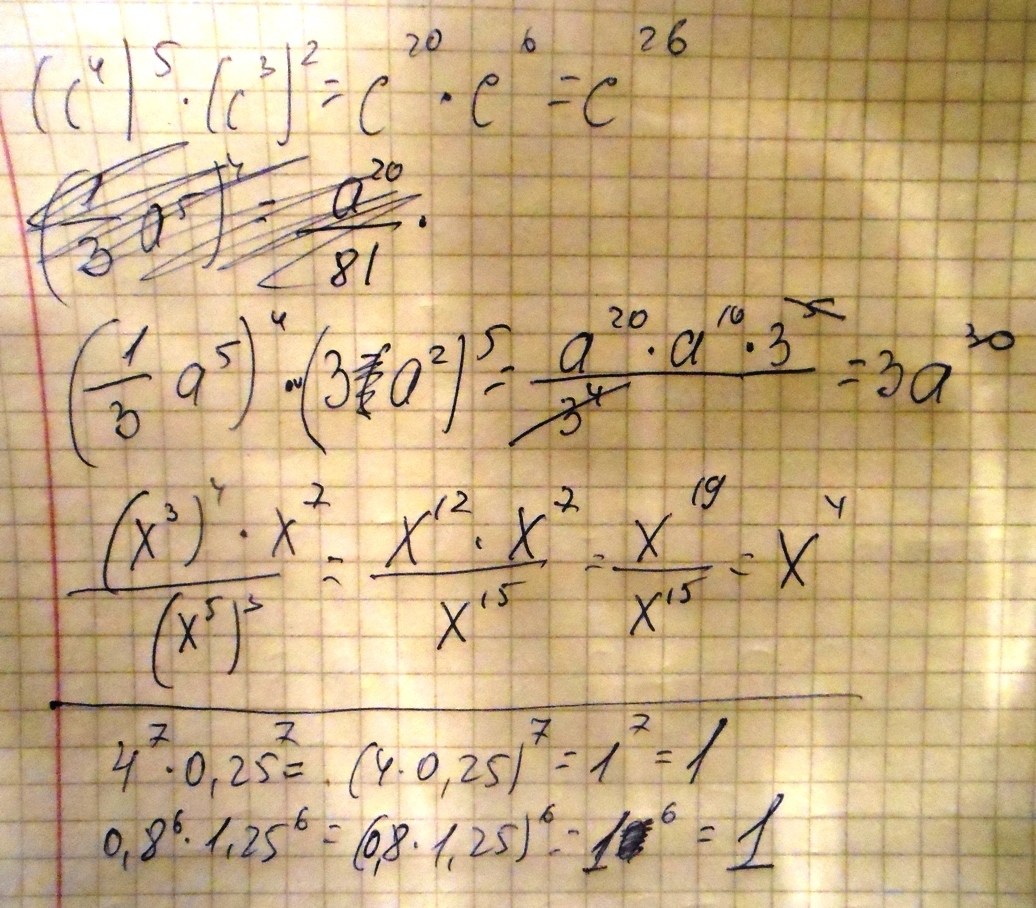 (c⁴)⁵ · (c³)² = c²⁰ · c⁶ = c²⁶
(1/3 a⁵)⁴ = a²⁰/81 .
(1/3 a⁵)⁴ · (3 a²)⁵ = (a²⁰ · a¹⁰ · 3⁵)/3⁴ = 3a³⁰
((x³)⁴ · x⁷)/(x⁵)³ = (x¹² · x⁷)/x¹⁵ = x¹⁹/x¹⁵ = x⁴
4⁷ · 0,25⁷ = (4 · 0,25)⁷ = 1⁷ = 1
0,8⁶ · 1,25⁶ = (0,8 · 1,25)⁶ = 1⁶ = 1